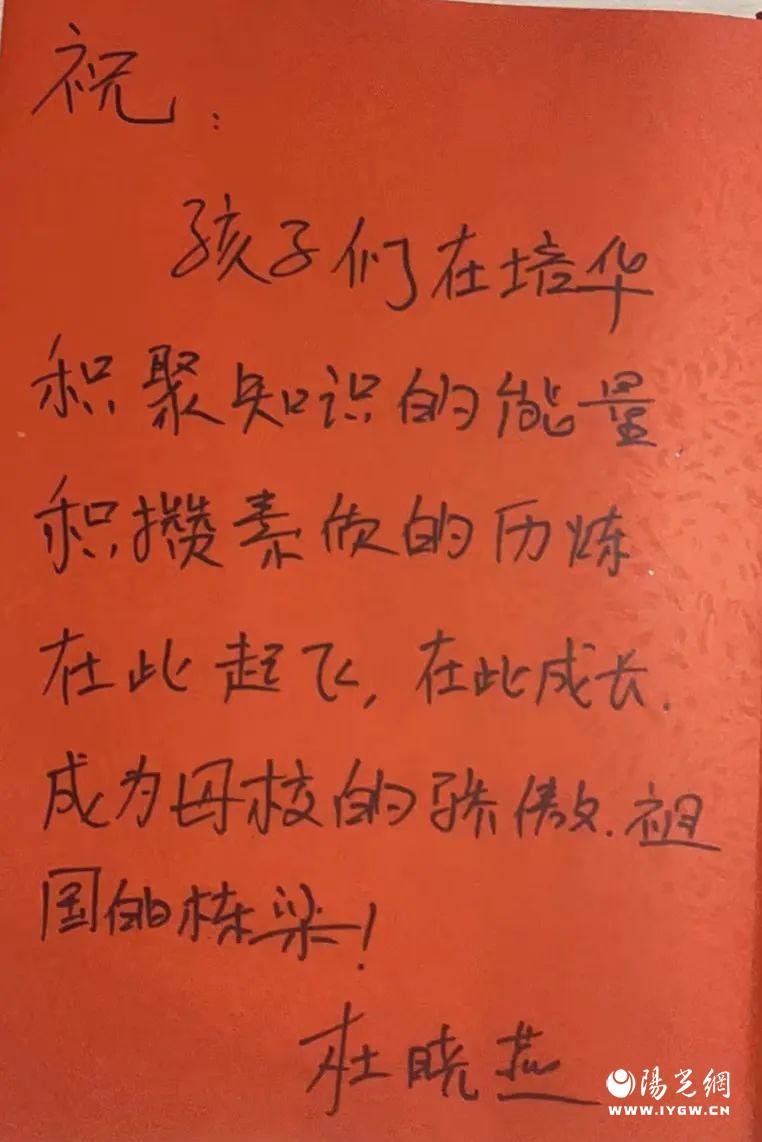 祝：
孩子们在培华
积聚知识的能量
积攒素质的历炼
在此起飞，在此成长.
成为母校的骄傲.祖
国的栋梁！
杜晓燕
陽光網
WWW.IYGW.CN